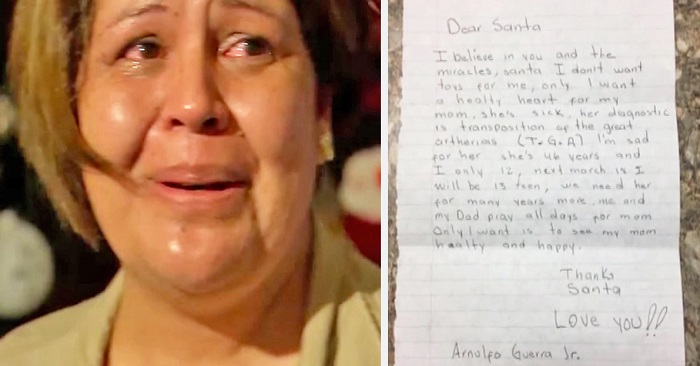 Dear Santa
I believe in you and the
miracles, santa I don't want
toys for me, only I want
a healty heart for my
mom, she's sick, her diagnostic
is transposition of the great
artherias (T.G.A) I'm sad
for her she's 46 years and
I only 12, next march is I
will be 13 teen, we need her
for many years more me and
my Dad pray all days for mom
Only I want is to see my mom
healty and happy.
Thanks
Santa
Love you!!
Arnulfo Guerra Jr.